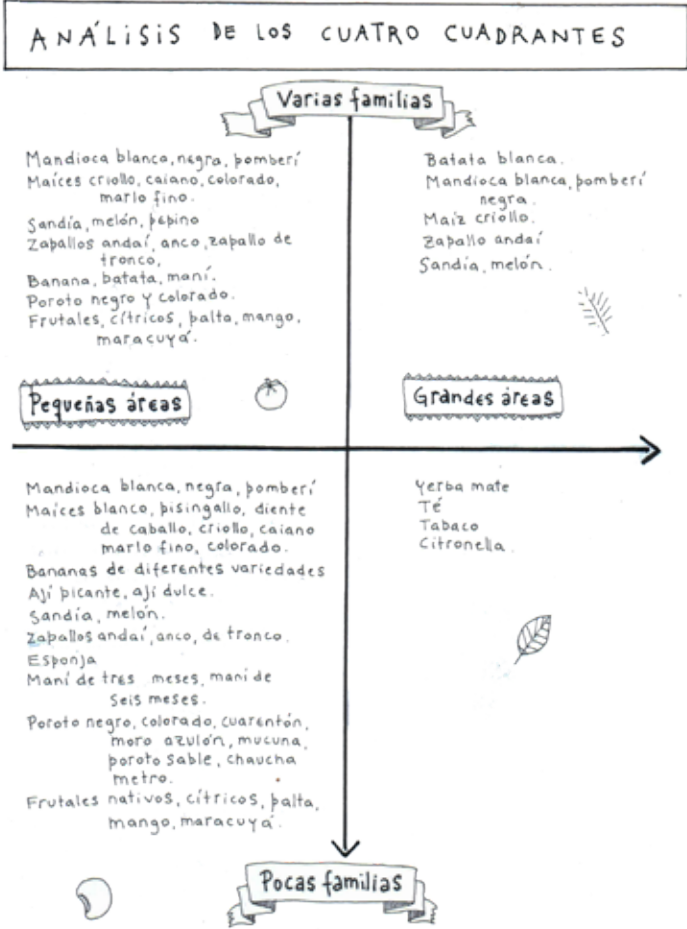 ANÁLISIS DE LOS CUATRO CUADRANTES
Varias familias
Mandioca blanca, negra, pomberí
Maíces criollo, caiano, colorado,
marlo fino.
Sandía, melón, pepino
Zapallos andaí, anco, zapallo de
tronco,
Banana, batata, maní.
Poroto negro y colorado.
Frutales, cítricos, palta, mango,
maracuyá.
Batata blanca.
Mandioca blanca, pomberí
negra.
Maíz criollo.
Zapallo andaí
Sandía, melón.
Pequeñas áreas
Grandes áreas
Mandioca blanca, negra, pomberí
Maíces blanco, pisingallo, diente
de caballo, criollo, caiano
marlo fino, colorado.
Bananas de diferentes variedades
Ají picante, ají dulce.
Sandía, melón.
Zapallos andaí, anco, de tronco.
Esponja
Maní de tres meses, maní de
seis meses.
Poroto negro, colorado, cuarentón,
moro azulón, mucuna,
poroto sable, chaucha
metro.
Frutales nativos, cítricos, palta,
mango, maracuyá.
Yerba mate
Té
Tabaco
Citronella.
Pocas familias